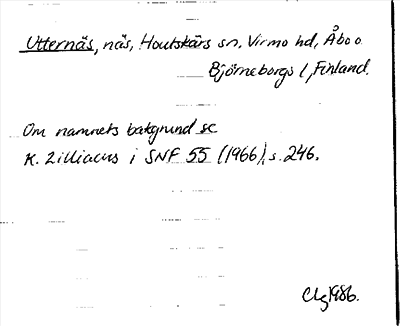 Utternäs, näs, Houtskärs sn, Virmo hd, Åbo o.
Björneborgs l, Finland.
Om namnets bakgrund se
K. Zilliacus i SNF 55 (1966), s. 246.
1986.